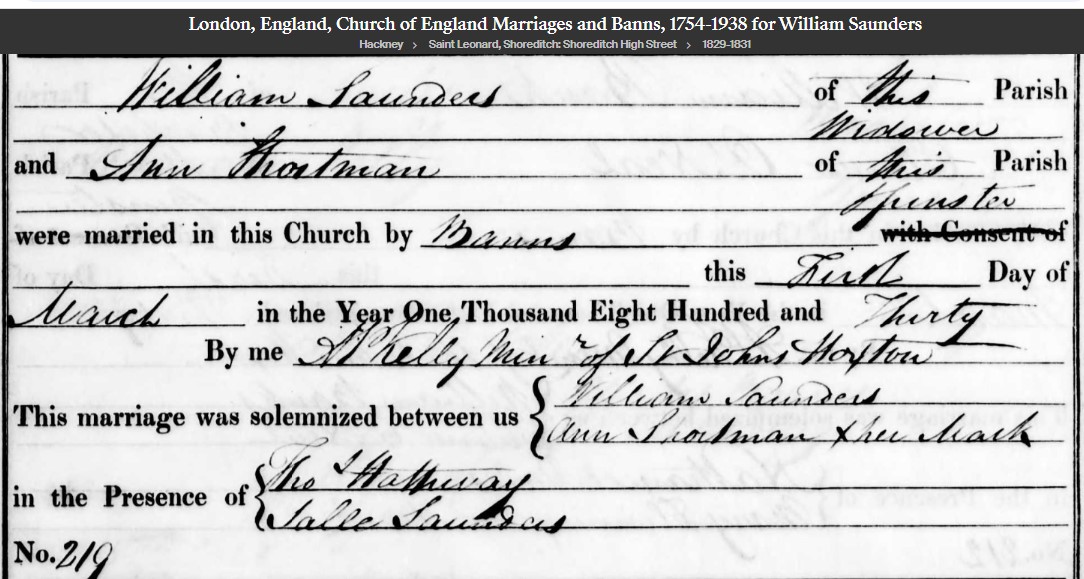 London, England, Church of England Marriages and Banns, 1754-1938 for William Saunders
Hackney > Saint Leonard, Shoreditch: Shoreditch High Street > 1829-1831
William Saunders of this Parish
Widower
and Ann Shortman of this Parish
Spinster
were married in this Church by Banns with Consent of
this First Day of
March in the Year One Thousand Eight Hundred and Thirty
By me AP Kelly Minr of St Johns Hoxton
This marriage was solemnized between us { William Saunders
Ann Shortman X her Mark
in the Presence of { Tho Hathway
Salle Saunders
No. 219